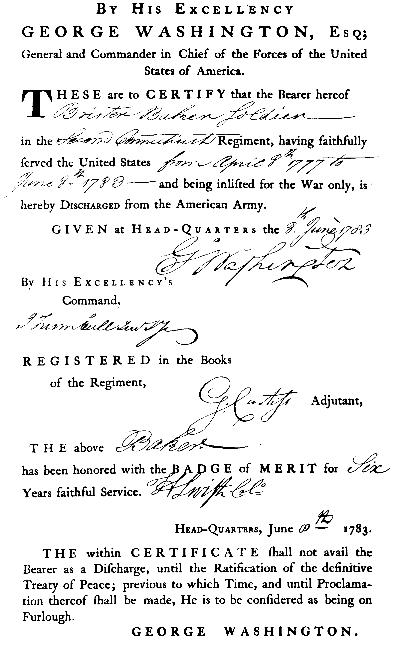 By His Excellency
GEORGE WASHINGTON, Esq;
General and Commander in Chief of the Forces of the United
States of America.
THESE are to CERTIFY that the Bearer hereof
Brister Baker Soldier
in the Second Connecticut Regiment, having faithfully
ſerved the United States from April 8th 1777 to
June 8th 1783 and being inliſted for the War only, is
hereby Discharged from the American Army.
GIVEN at Head-Quarters the 8th June 1783
G Washington
By His Excellency's
Command,
J Trumbull Junr
REGISTERED in the Books
of the Regiment,
G Curtiss Adjutant,
THE above Baker
has been honored with the BADGE of MERIT for Six
Years faithful Service. H Swift Col
Head-Quarters, June 8th 1783.
THE within CERTIFICATE ſhall not avail the
Bearer as a Diſcharge, until the Ratification of the definitive
Treaty of Peace; previous to which Time, and until Proclama-
tion thereof ſhall be made, He is to be conſidered as being on
Furlough.
GEORGE WASHINGTON.